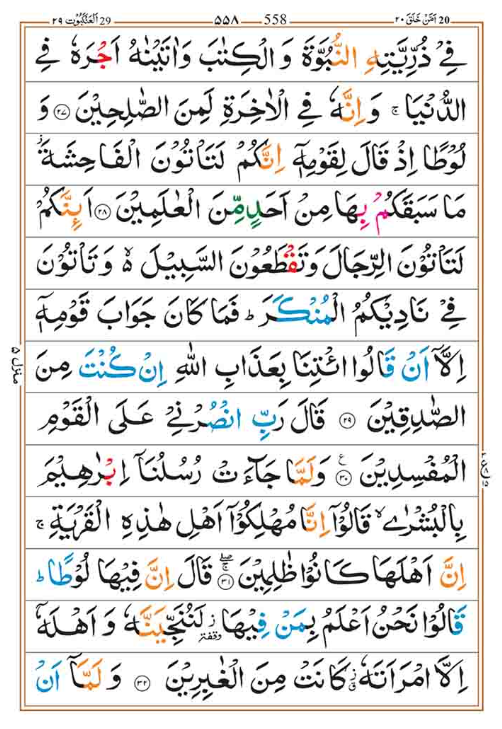 اَمَّنْ خَلَقَ ٢٠ 20 — 558 — ٥٥٨ — 29 اَلْعَنْكَبُوْت ٢٩
فِیْ ذُرِّیَّتِهِ النُّبُوَّةَ وَ الْكِتٰبَ وَاٰتَیْنٰهُ اَجْرَهٗ فِی
الدُّنْیَا ۚ وَاِنَّهٗ فِی الْاٰخِرَةِ لَمِنَ الصّٰلِحِیْنَ ﴿۲۷﴾ وَ
لُوْطًا اِذْ قَالَ لِقَوْمِهٖۤ اِنَّكُمْ لَتَاْتُوْنَ الْفَاحِشَةَ ؗ
مَا سَبَقَكُمْ بِهَا مِنْ اَحَدٍ مِّنَ الْعٰلَمِیْنَ ﴿۲۸﴾ اَىِٕنَّكُمْ
لَتَاْتُوْنَ الرِّجَالَ وَتَقْطَعُوْنَ السَّبِیْلَ ۙ۬ وَتَاْتُوْنَ
فِیْ نَادِیْكُمُ الْمُنْكَرَ ؕ فَمَا كَانَ جَوَابَ قَوْمِهٖۤ
اِلَّاۤ اَنْ قَالُوا ائْتِنَا بِعَذَابِ اللّٰهِ اِنْ كُنْتَ مِنَ
الصّٰدِقِیْنَ ﴿۲۹﴾ قَالَ رَبِّ انْصُرْنِیْ عَلَی الْقَوْمِ
الْمُفْسِدِیْنَ ﴿۳۰﴾ ع وَلَمَّا جَآءَتْ رُسُلُنَاۤ اِبْرٰهِیْمَ
بِالْبُشْرٰی ۙ قَالُوْۤا اِنَّا مُهْلِكُوْۤا اَهْلِ هٰذِهِ الْقَرْیَةِ ۚ
اِنَّ اَهْلَهَا كَانُوْا ظٰلِمِیْنَ ﴿۳۱﴾ ۚۖ قَالَ اِنَّ فِیْهَا لُوْطًا ؕ
قَالُوْا نَحْنُ اَعْلَمُ بِمَنْ فِیْهَا ؗ لَنُنَجِّیَنَّهٗ وَ اَهْلَهٗۤ
اِلَّا امْرَاَتَهٗ ؗ كَانَتْ مِنَ الْغٰبِرِیْنَ ﴿۳۲﴾ وَ لَمَّاۤ اَنْ
منزل ٥